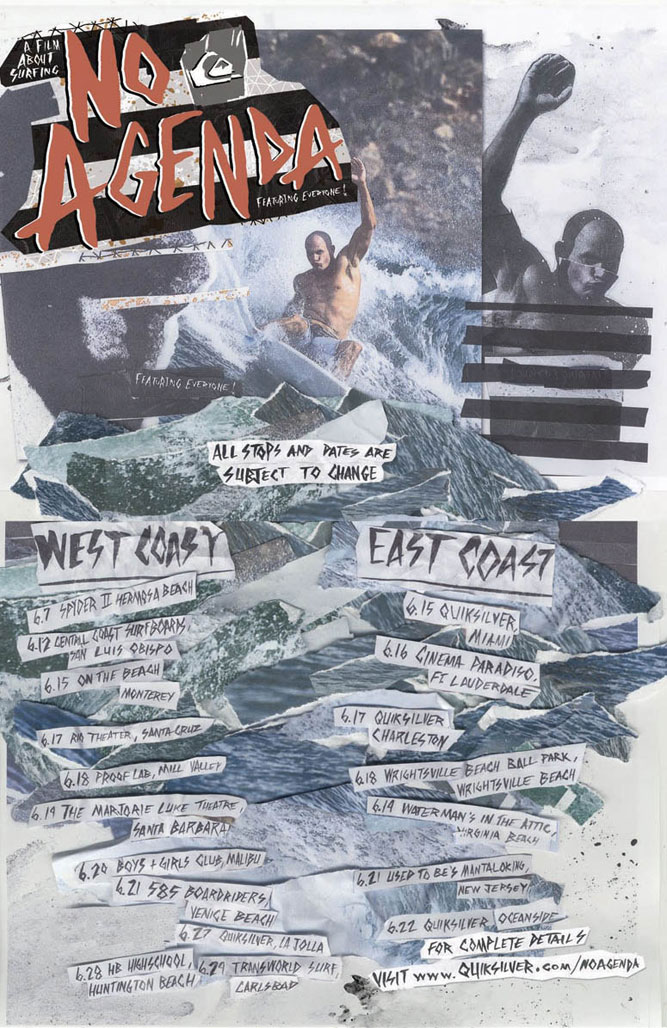 A FILM
ABOUT
SURFING
NO
AGENDA
FEATURING EVERYONE!
FEATURING EVERYONE!
ALL STOPS AND DATES ARE
SUBJECT TO CHANGE
WEST COAST
6.7 SPIDER II HERMOSA BEACH
6.12 CENTRAL COAST SURFBOARDS,
SAN LUIS OBISPO
6.15 ON THE BEACH
MONTEREY
6.17 RIO THEATER, SANTA CRUZ
6.18 PROOF LAB, MILL VALLEY
6.19 THE MARJORIE LUKE THEATRE,
SANTA BARBARA
6.20 BOYS + GIRLS CLUB, MALIBU
6.21 585 BOARDRIDERS,
VENICE BEACH
6.27 QUIKSILVER, LA JOLLA
6.28 HB HIGHSCHOOL,
HUNTINGTON BEACH
6.29 TRANSWORLD SURF,
CARLSBAD
EAST COAST
6.15 QUIKSILVER,
MIAMI
6.16 CINEMA PARADISO,
FT LAUDERDALE
6.17 QUIKSILVER
CHARLESTON
6.18 WRIGHTSVILLE BEACH BALL PARK,
WRIGHTSVILLE BEACH
6.19 WATERMAN'S IN THE ATTIC,
VIRGINIA BEACH
6.21 USED TO BE'S MANTALOKING,
NEW JERSEY
6.22 QUIKSILVER OCEANSIDE
FOR COMPLETE DETAILS
VISIT WWW.QUIKSILVER.COM/NOAGENDA